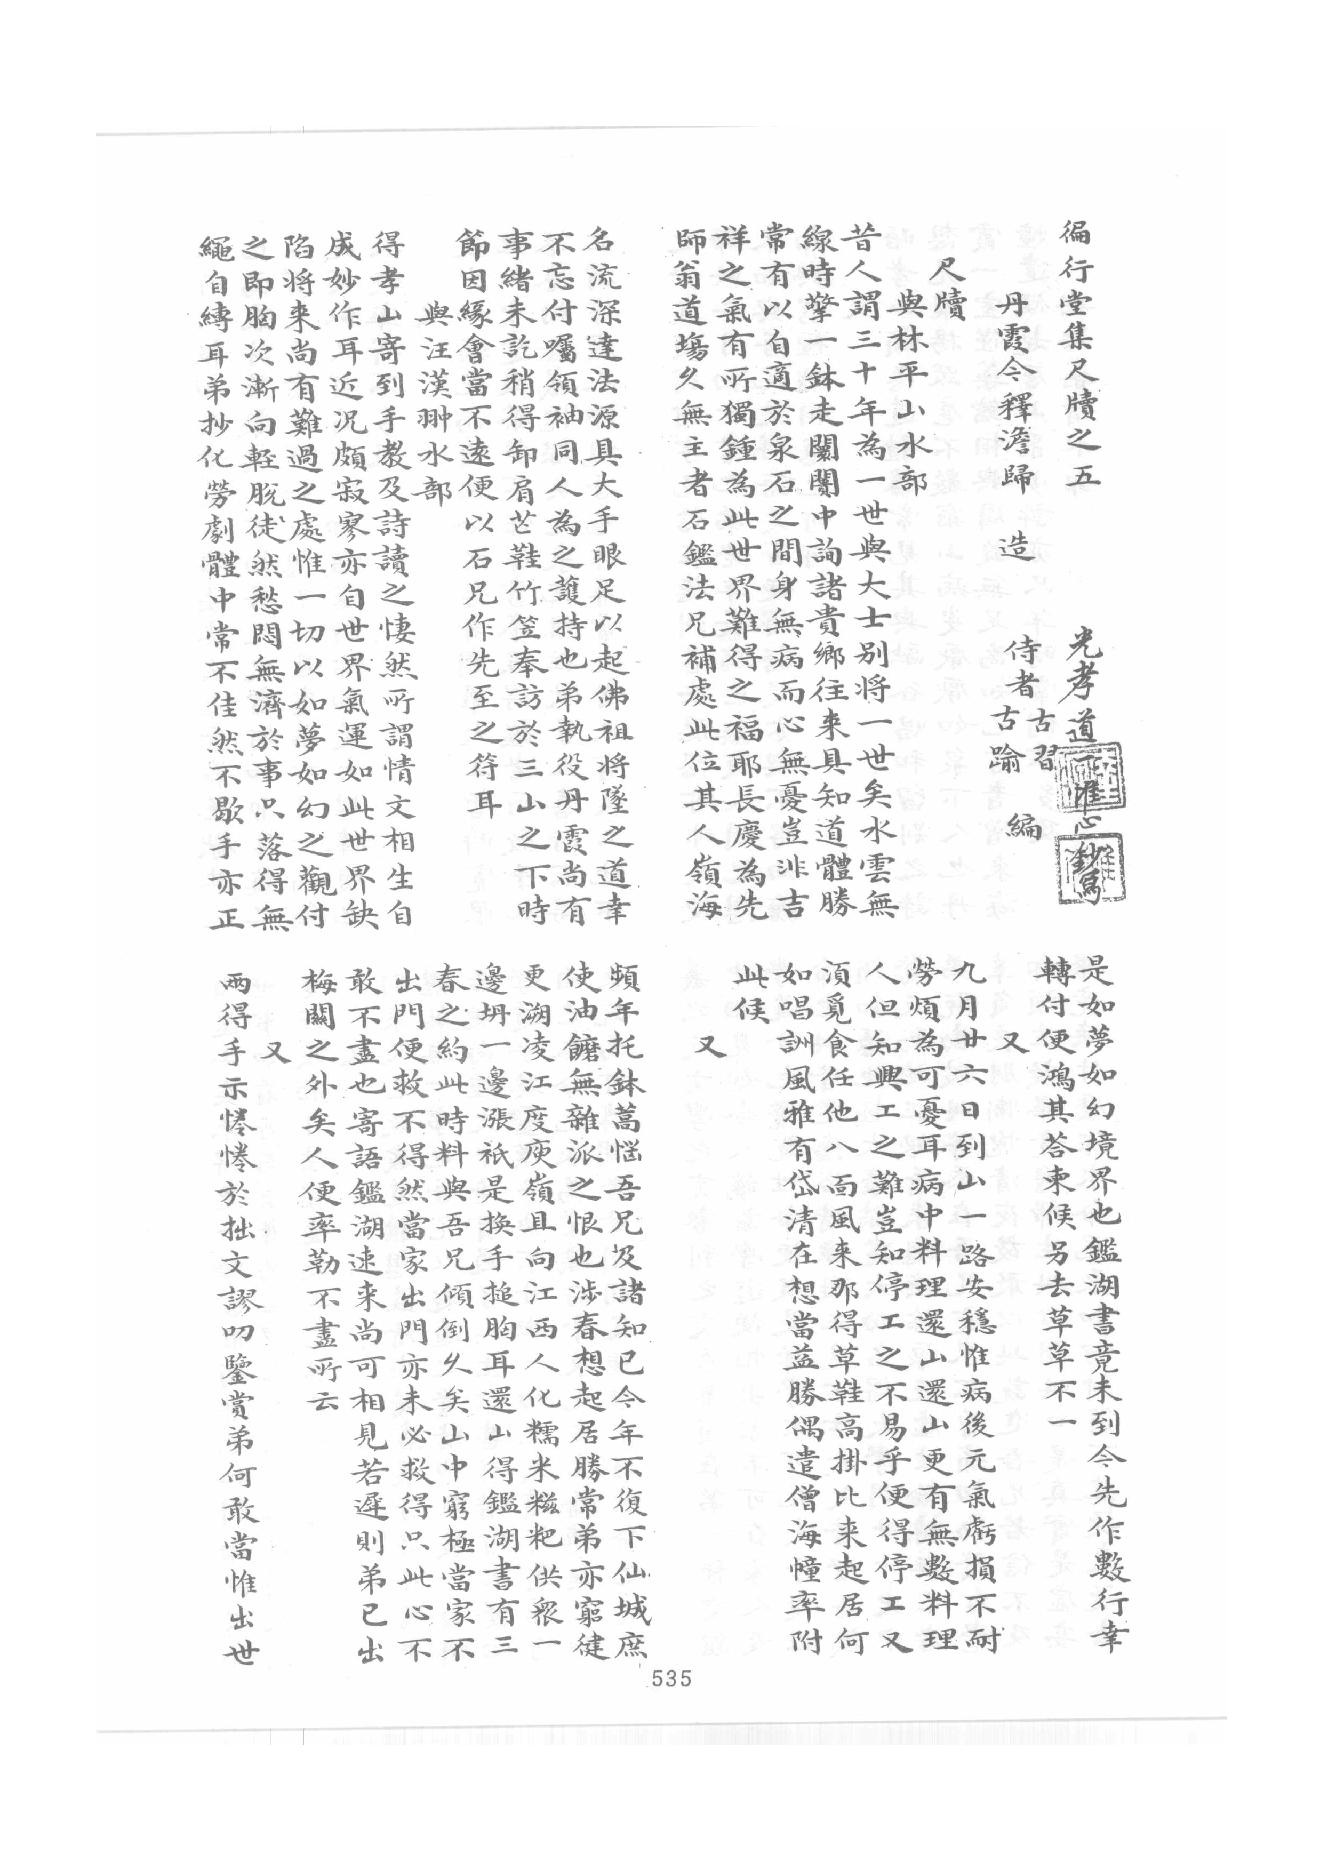 徧行堂集尺牘之五
光孝道一惟心鈔寫
丹霞今釋澹歸　造
侍者古習
古踰　編
尺牘
與林平山水部
昔人謂三十年為一世與大士别將一世矣水雲無
線時擎一鉢走闤闠中詢諸貴鄉往来具知道體勝
常有以自適於泉石之間身無病而心無憂豈非吉
祥之氣有所獨鍾為此世界難得之福耶長慶為先
師翁道塲久無主者石鑑法兄補處此位其人嶺海
名流深達法源具大手眼足以起佛祖將墜之道幸
不忘付囑領袖同人為之護持也弟執役丹霞尚有
事緒未訖稍得卸肩芒鞋竹笠奉訪於三山之下時
節因緣會當不遠便以石兄作先至之符耳
與汪漢翀水部
得孝山寄到手教及詩讀之悽然所謂情文相生自
成妙作耳近况頗寂寥亦自世界氣運如此世界缺
陷將来尚有難過之處惟一切以如夢如幻之觀付
之即胸次漸向輕脱徒然愁悶無濟於事只落得無
繩自縛耳弟抄化勞劇體中常不佳然不歇手亦正
是如夢如幻境界也鑑湖書竟未到今先作數行幸
轉付便鴻其荅柬候另去草草不一
又
九月廿六日到山一路安穩惟病後元氣虧損不耐
勞煩為可憂耳病中料理還山還山更有無數料理
人但知興工之難豈知停工之不易乎便得停工又
湏覓食任他八面風来那得草鞋高掛比来起居何
如唱詶風雅有岱清在想當益勝偶遣僧海幢率附
此候
又
頻年托鉢蒿惱吾兄及諸知已今年不復下仙城庶
使油鐮無雜派之恨也涉春想起居勝常弟亦窮健
更溯凌江度庾嶺且向江西人化糯米糍粑供衆一
邊坍一邊漲祇是換手搥胸耳還山得鑑湖書有三
春之約此時料與吾兄傾倒久矣山中窮極當家不
出門便救不得然當家出門亦未必救得只此心不
敢不盡也寄語鑑湖速来尚可相見若遲則弟已出
梅關之外矣人便率勒不盡所云
又
兩得手示惓惓於拙文謬叨鑒賞弟何敢當惟出世
535